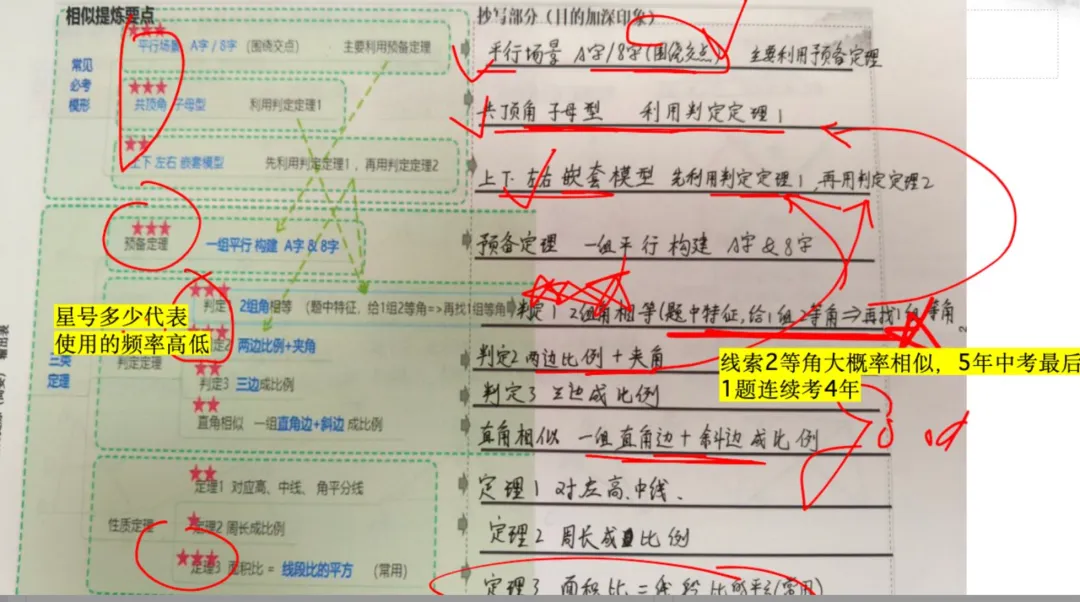 相似提炼要点
抄写部分（目的加深印象）
平行场景 A字 / 8字 (围绕交点) 主要利用预备定理
平行场景 A字/8字(围绕交点) 主要利用预备定理
常见
必考
模形
共顶角 子母型 利用判定定理1
共顶角 子母型 利用判定定理1
上下 左右 嵌套模型 先利用判定定理1，再用判定定理2
上下 左右 嵌套模型 先利用判定定理1,再用判定定理2
预备定理 一组平行 构建 A字 & 8字
预备定理 一组平行 构建 A字&8字
判定1 2组角相等 (题中特征，给1组2等角=>再找1组等角)
判定1 2组角相等(题中特征,给1组2等角⇒再找1组等角
星号多少代表
使用的频率高低
判定2 两边比例+夹角
判定2 两边比例+夹角
三类
定理
判定定理
线索2等角大概率相似，5年中考最后
1题连续考4年
判定3 三边成比例
判定3 三边成比例
直角相似 一组直角边+斜边 成比例
直角相似 一组直角边+斜边成比例
定理1 对应高、中线、角平分线
定理1 对应高、中线、
性质定理
定理2 周长成比例
定理2 周长成比例
定理3 面积比 = 线段比的平方 (常用)
定理3 面积比=线段比的平方(常用)
2